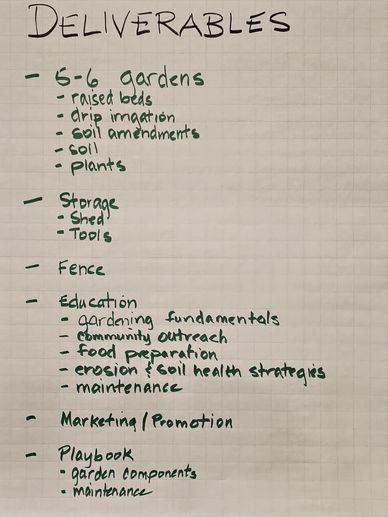 DELIVERABLES
- 5-6 gardens
- raised beds
- drip irrigation
- soil amendments
- soil
- plants
- Storage
- Shed
- Tools
- Fence
- Education
- gardening fundamentals
- community outreach
- food preparation
- erosion & soil health strategies
- maintenance
- Marketing/Promotion
- Playbook
- garden components
- maintenance